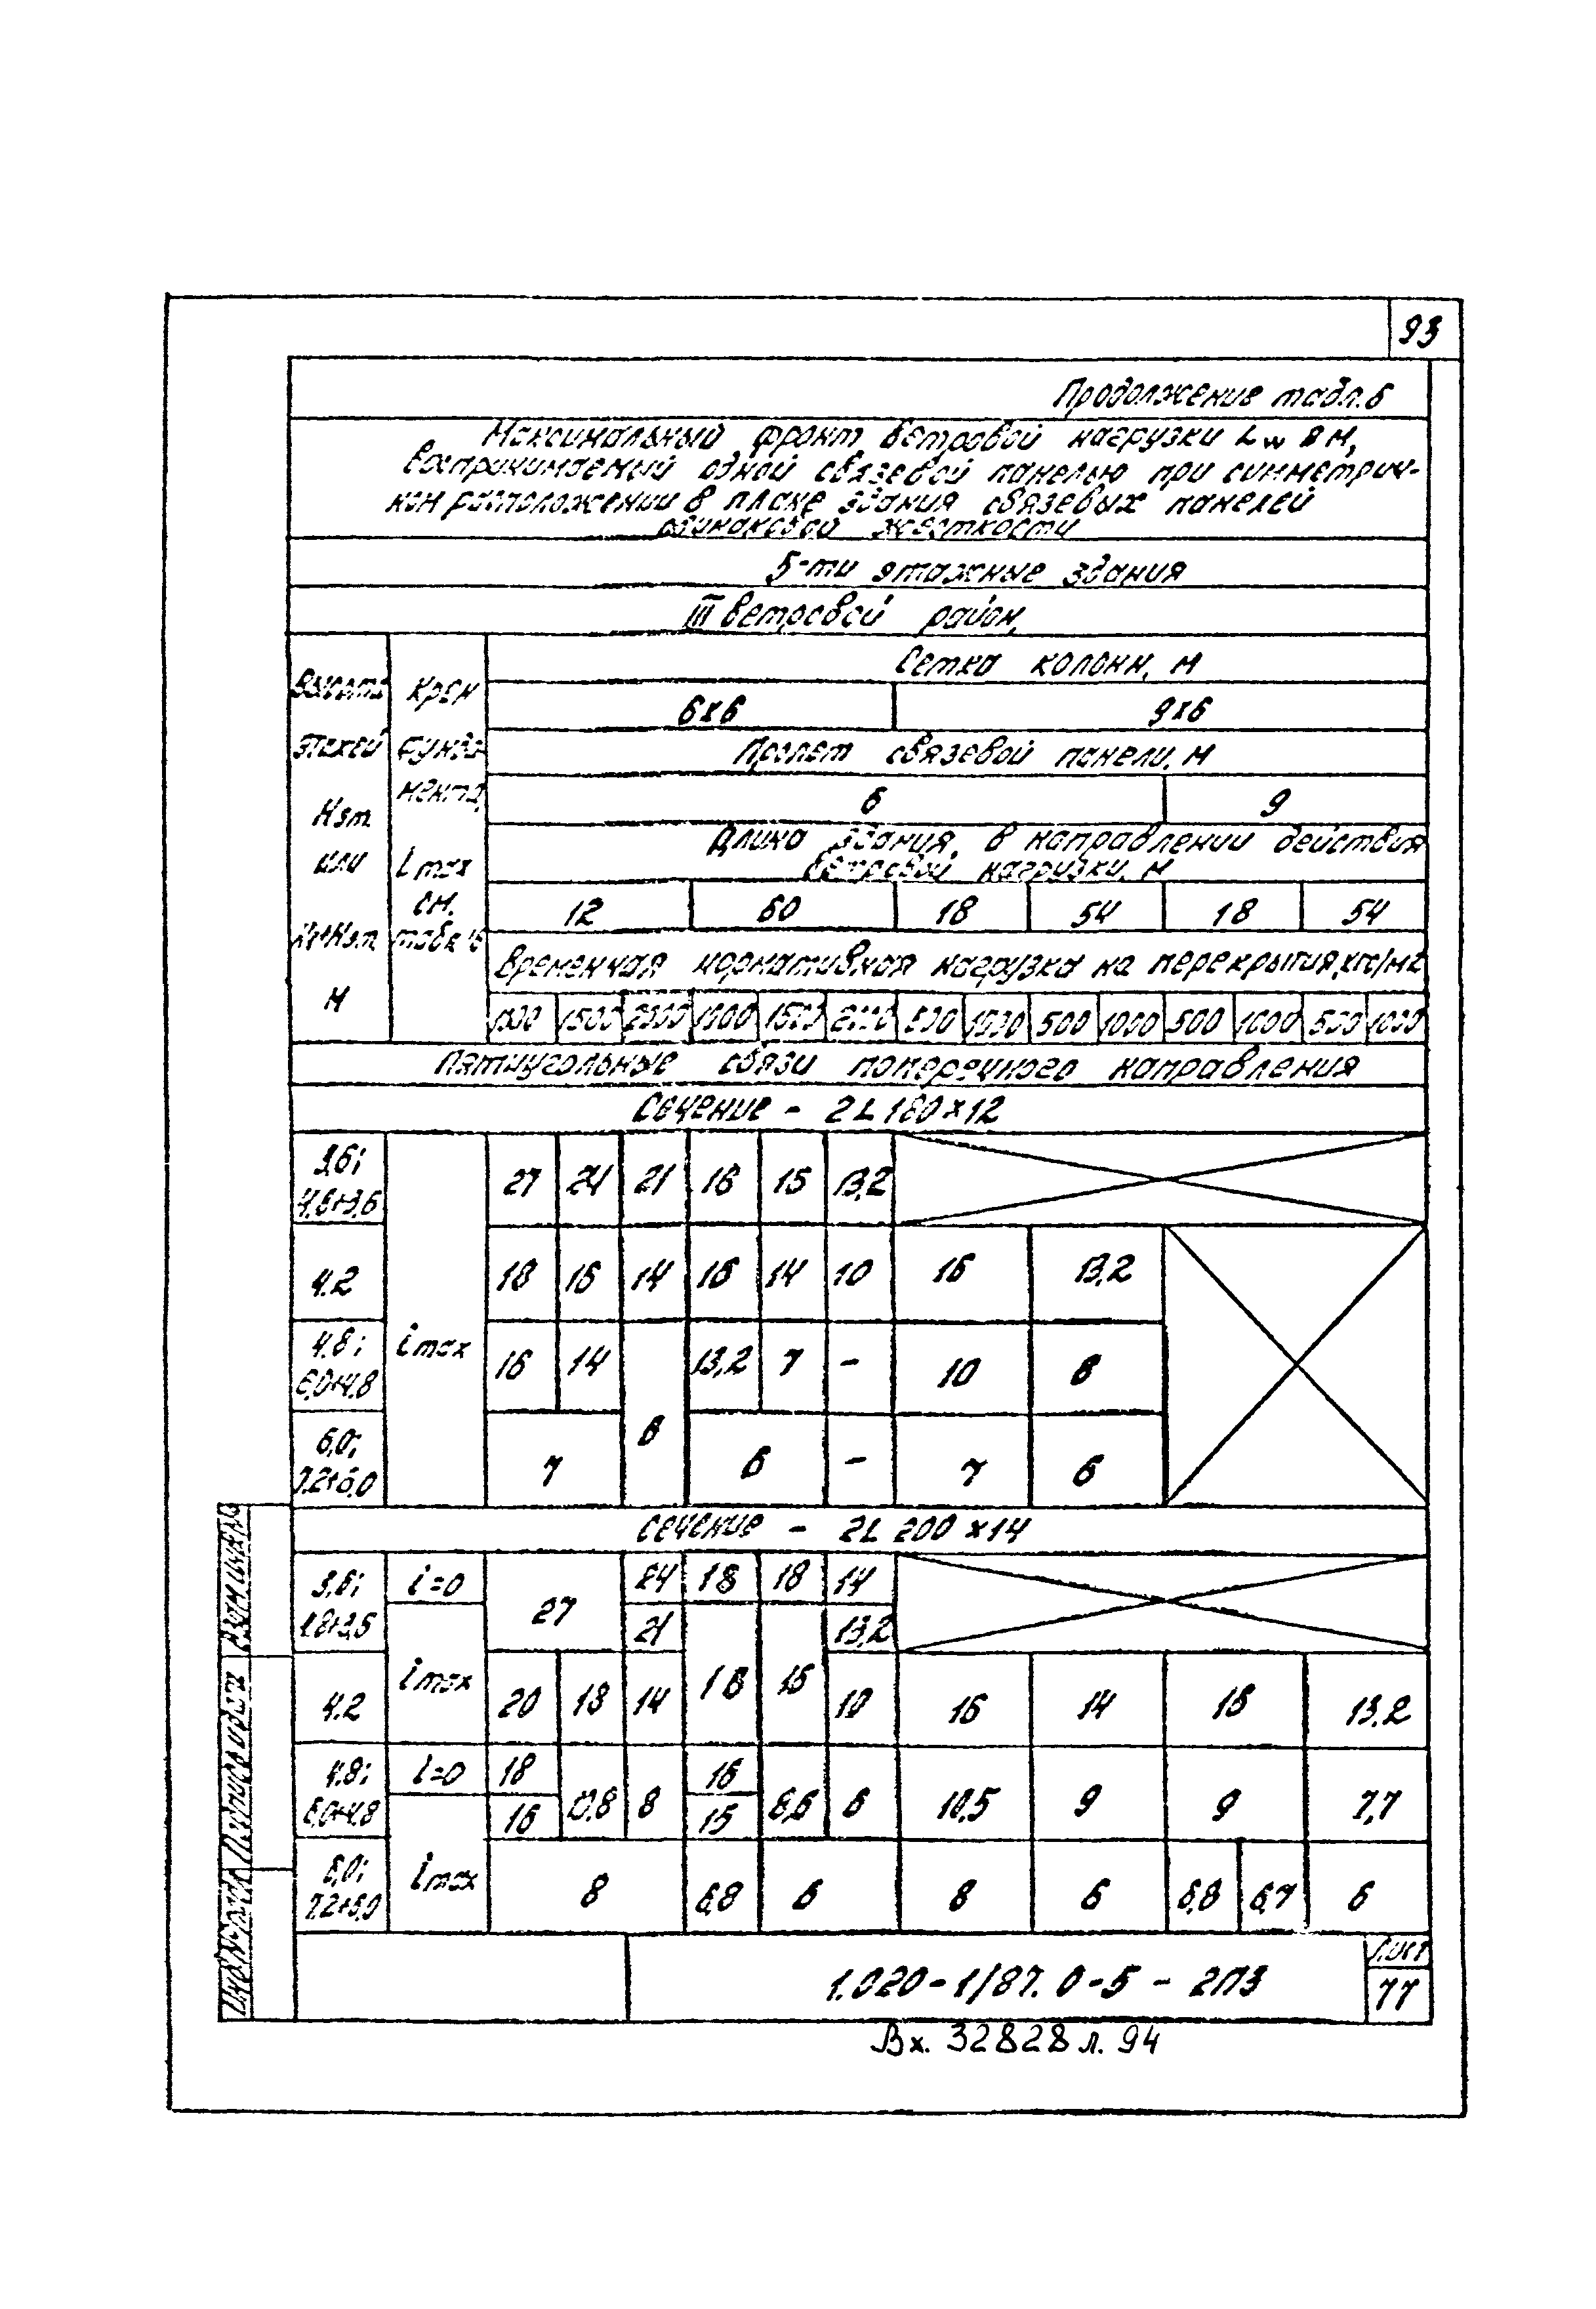 93
Продолжение табл. 6
Максимальный фронт ветровой нагрузки Lw в м,
воспринимаемый одной связевой панелью при симметрич-
ном расположении в плане здания связевых панелей
одинаковой жесткости
5-ти этажные здания
III ветровой район,
Сетка колонн, м
Высота
Крен
6х6 9х6
этажей
фунда-
Пролет связевой панели, м
мента,
6 9
Нэт
Длина здания, в направлении действия
ветровой нагрузки, м
или
i max
см.
12 60 18 54 18 54
табл.
Временная нормативная нагрузка на перекрытия, кгс/м2
м
1000 1500 2000 1000 1500 2000 500 1000 500 1000 500 1000 500 1000
Пятиугольные связи поперечного направления
Сечение - 2L 180х12
3,6;
4,8+3,6
27 24 21 18 15 13,2
4.2
18 16 14 16 14 10 16 13,2
4.8;
6,0+4,8
i max
16 14 13,2 7 - 10 8
6,0;
7.2+6,0
7 6 6 - 7 6
Сечение - 2L 200х14
3,6;
4.8+3,6
i=0
27 24 18 18 14
21 13,2
i max
18
4.2
20 18 14 10 16 14 13,2
4.8;
6,0+4,8
i=0
18 16
16 8 15 6,6 6 10,5 9 9 7,7
6,0;
7.2+6,0
i max
8 6,8 6 8 6 6,8 6,7 6
1.020-1/87. 0-5 - 2ПЗ
Лист
77
Вх. 32828 л. 94
Взам инв №
Подпись и дата
Инв № подл